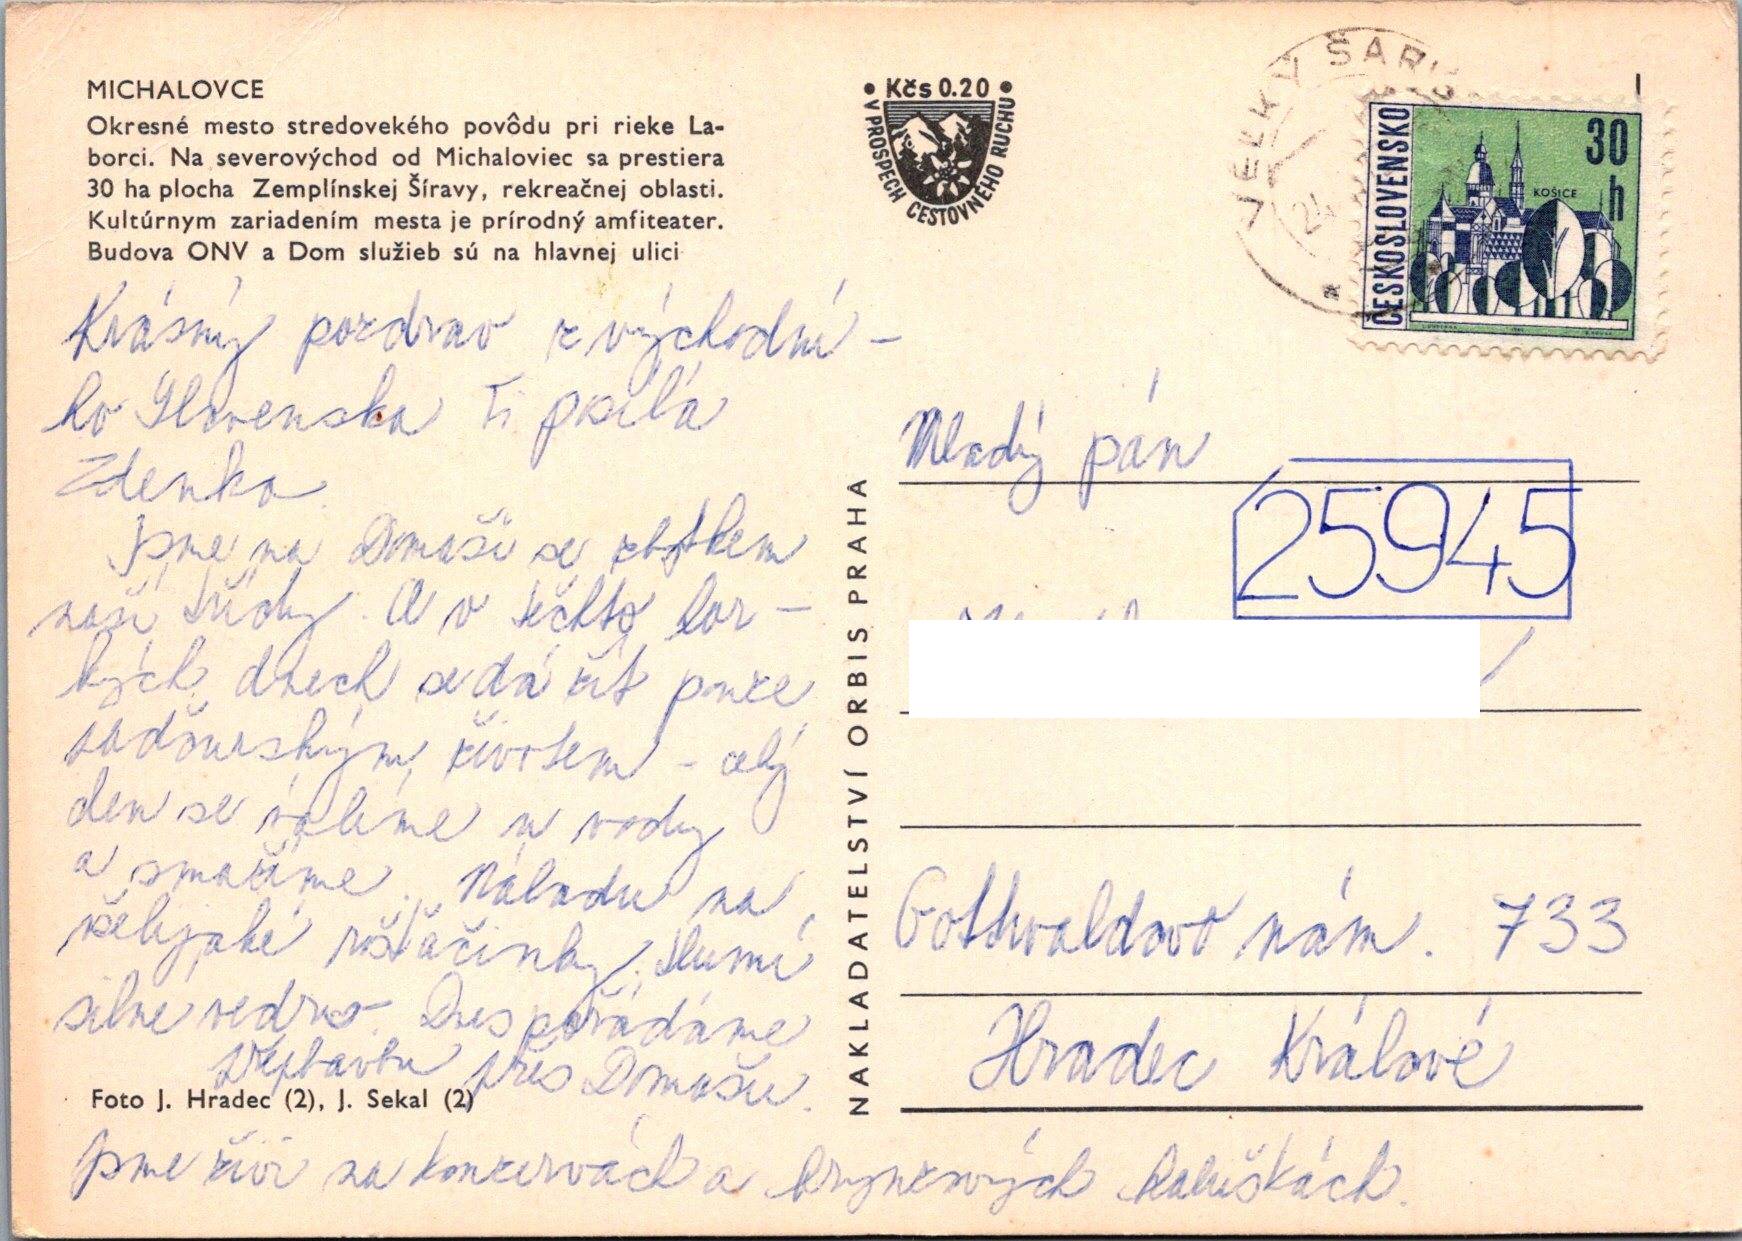 MICHALOVCE
Okresné mesto stredovekého povôdu pri rieke La-
borci. Na severovýchod od Michaloviec sa prestiera
30 ha plocha Zemplínskej Šíravy, rekreačnej oblasti.
Kultúrnym zariadením mesta je prírodný amfiteater.
Budova ONV a Dom služieb sú na hlavnej ulici
Krásný pozdrav z východní-
ho Slovenska Ti posílá
Zdenka.
Jsme na Domaši se zbytkem
naší třídy. A v těchto hor-
kých dnech se dá žít pouze
životem - celý
den se válíme u vody
a smažíme. Náladu na
všelijaké tlumí
silné vedro. Dnes pořádáme
přes Domašu.
Foto J. Hradec (2), J. Sekal (2)
Jsme živi na konzervách a brynzových haluškách.
NAKLADATELSTVÍ ORBIS PRAHA
• Kčs 0.20 •
V PROSPECH CESTOVNÉHO RUCHU
VELKÝ ŠARI
24
ČESKOSLOVENSKO
30 h
KOŠICE
Mladý pán
25945
Gottwaldovo nám. 733
Hradec Králové